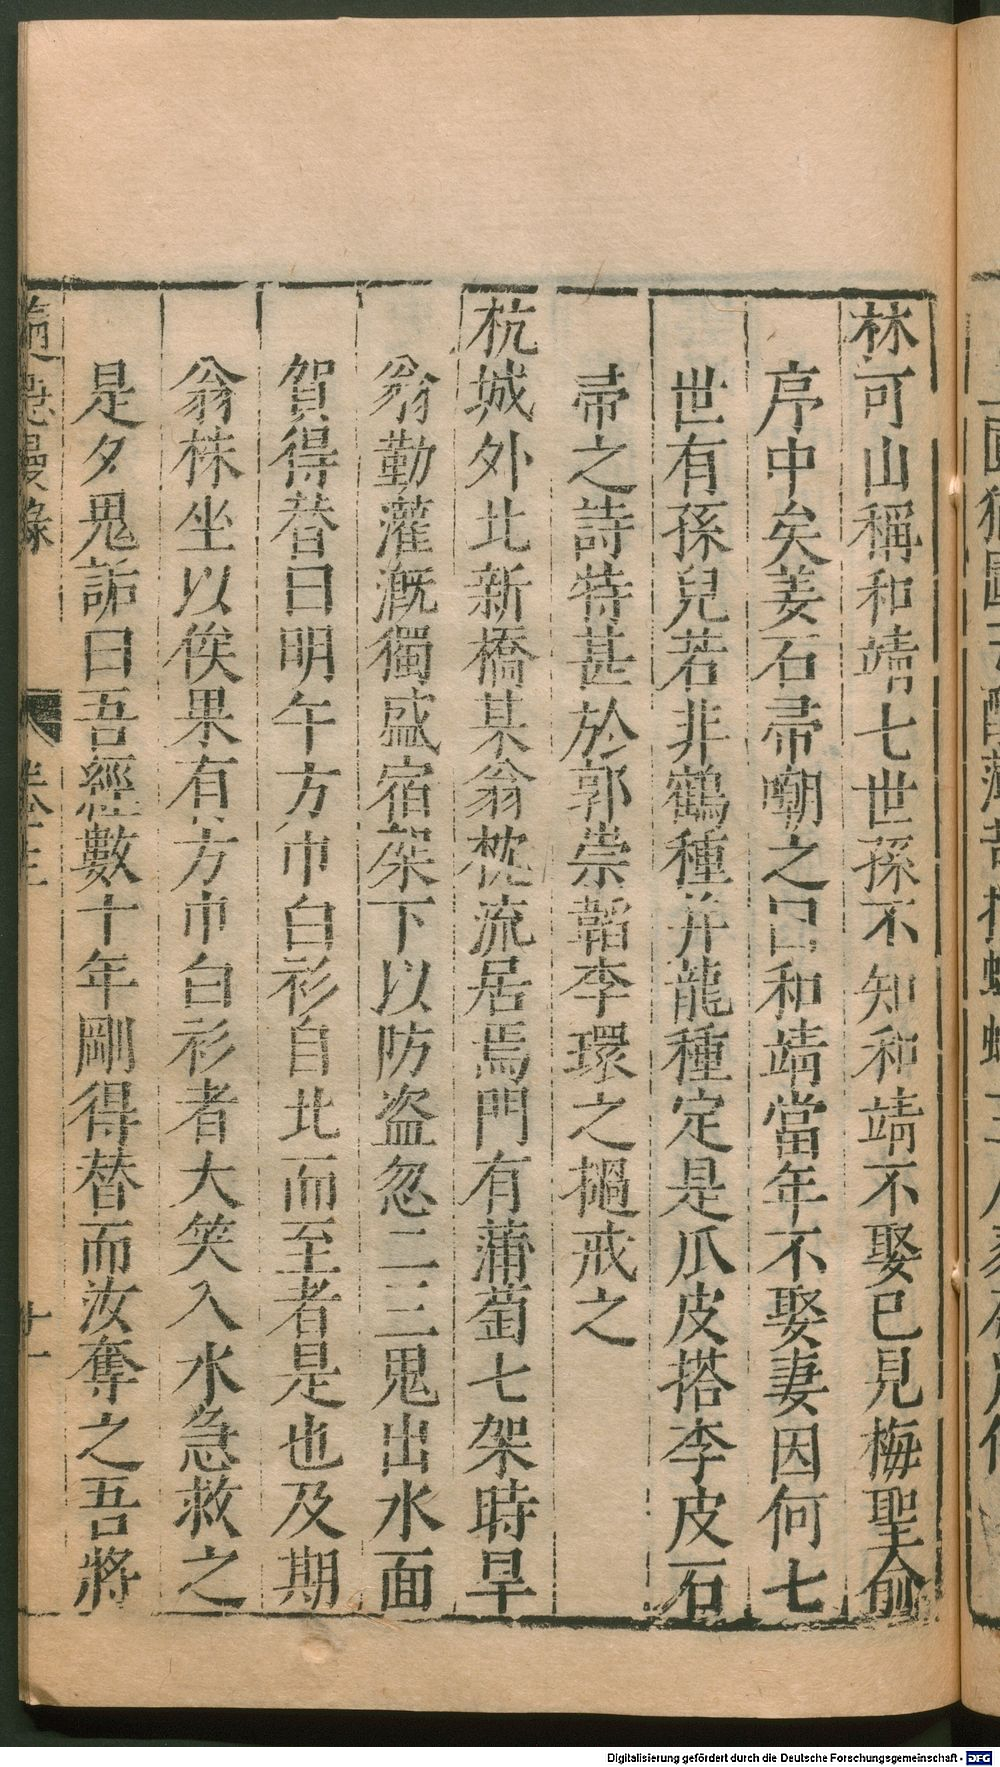 林可山稱和靖七世孫不知和靖不娶已見梅聖俞
序中矣姜石帚嘲之曰和靖當年不娶妻因何七
世有孫兒若非鶴種并龍種定是瓜皮搭李皮石
帚之詩特甚於郭崇韜李環之撾戒之
杭城外北新橋某翁枕流居焉門有蒲萄七架時旱
翁勤灌溉獨盛宿架下以防盗忽二三鬼出水面
賀得替曰明午方巾白衫自北而至者是也及期
翁株坐以俟果有方巾白衫者大笑入水急救之
是夕鬼詬曰吾經數十年剛得替而汝奪之吾將
隨隱漫錄 卷三 廿一
Digitalisierung gefördert durch die Deutsche Forschungsgemeinschaft - DFG